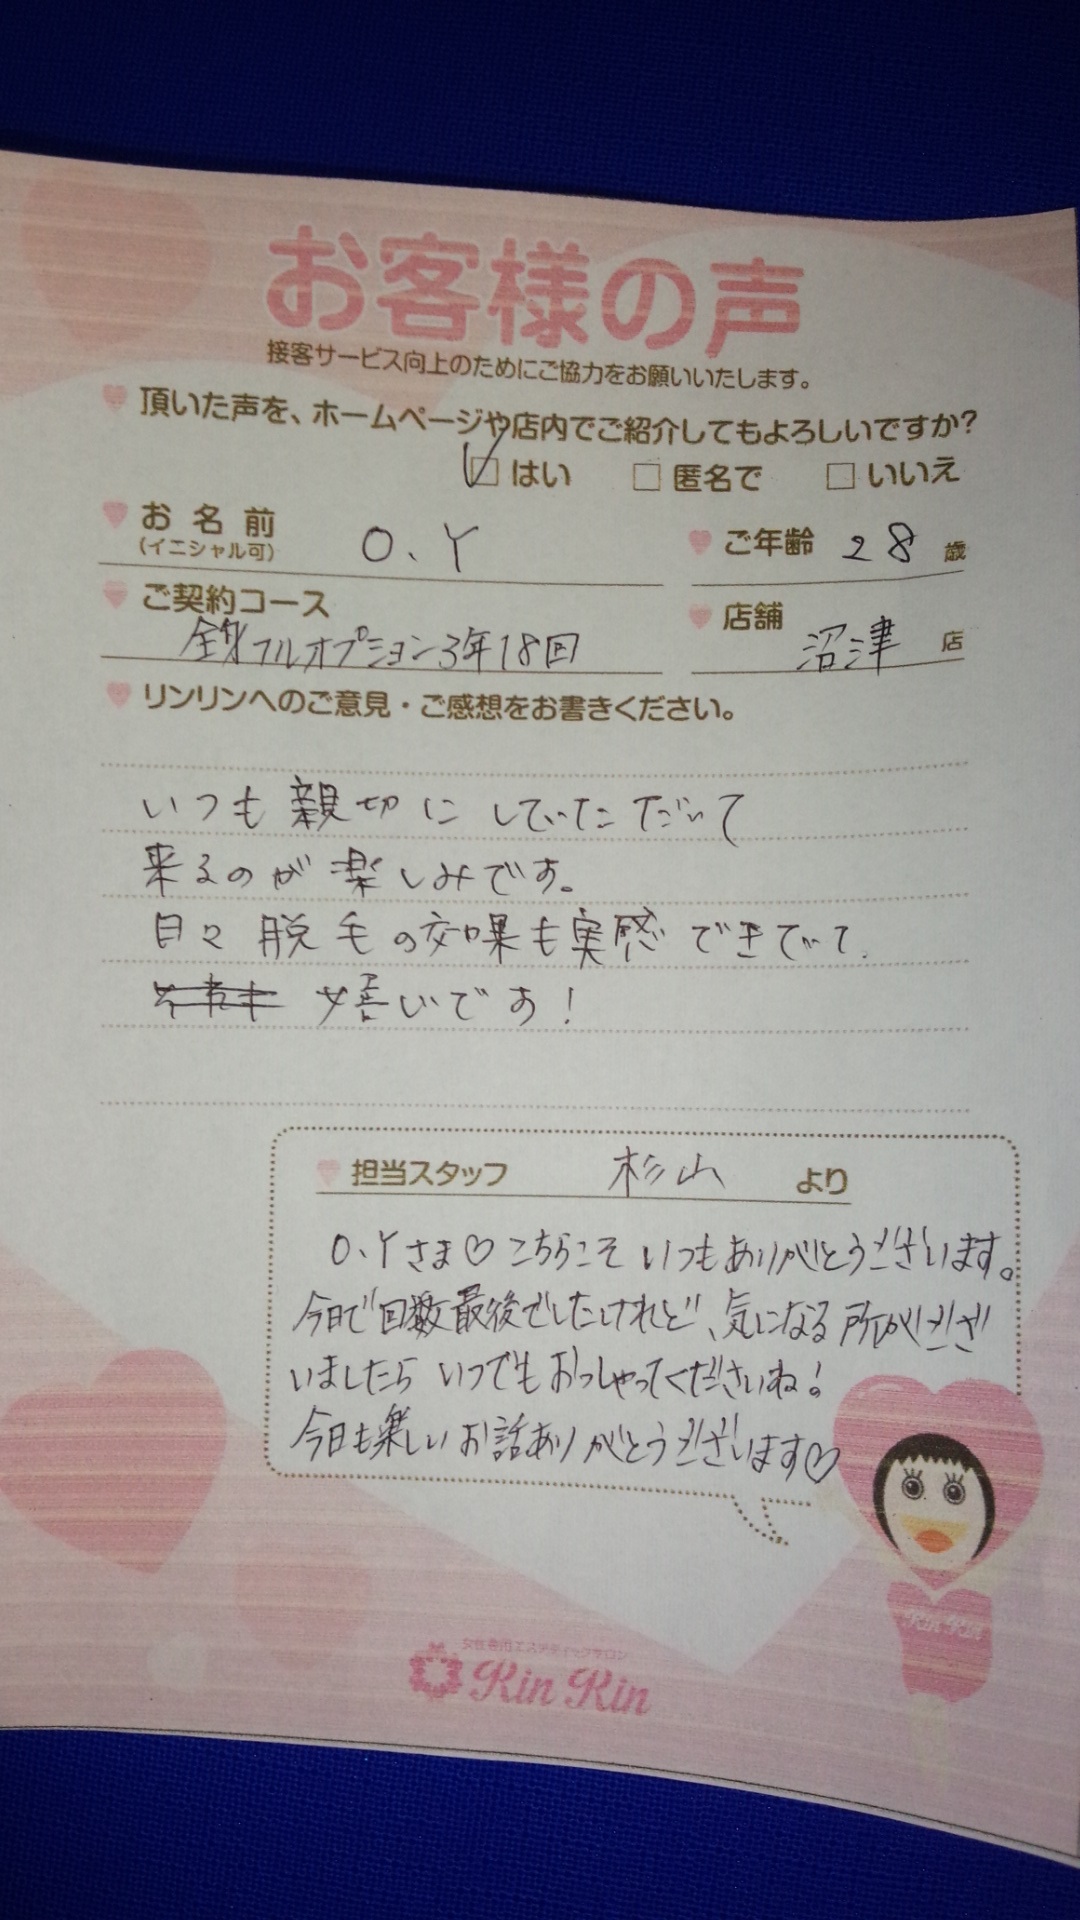 お客様の声
接客サービス向上のためにご協力をお願いいたします。
頂いた声を、ホームページや店内でご紹介してもよろしいですか?
はい 匿名で いいえ
お名前 O.Y ご年齢 28 歳
(イニシャル可)
ご契約コース 店舗
全身フルオプション3年18回 沼津 店
リンリンへのご意見・ご感想をお書きください。
いつも親切にしていただいて
来るのが楽しみです。
日々脱毛の効果も実感できていて
嬉しいです!
担当スタッフ 杉山 より
O.Yさま♡こちらこそいつもありがとうございます。
今日で回数最後でしたけれど、気になる所がござ
いましたらいつでもおっしゃってくださいね!
今日も楽しいお話ありがとうございます♡
Rin Rin
女性専用エステティックサロン
Rin Rin